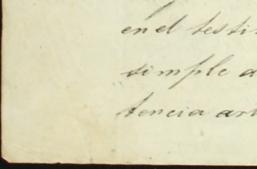 en el testi
simple a
tencia an